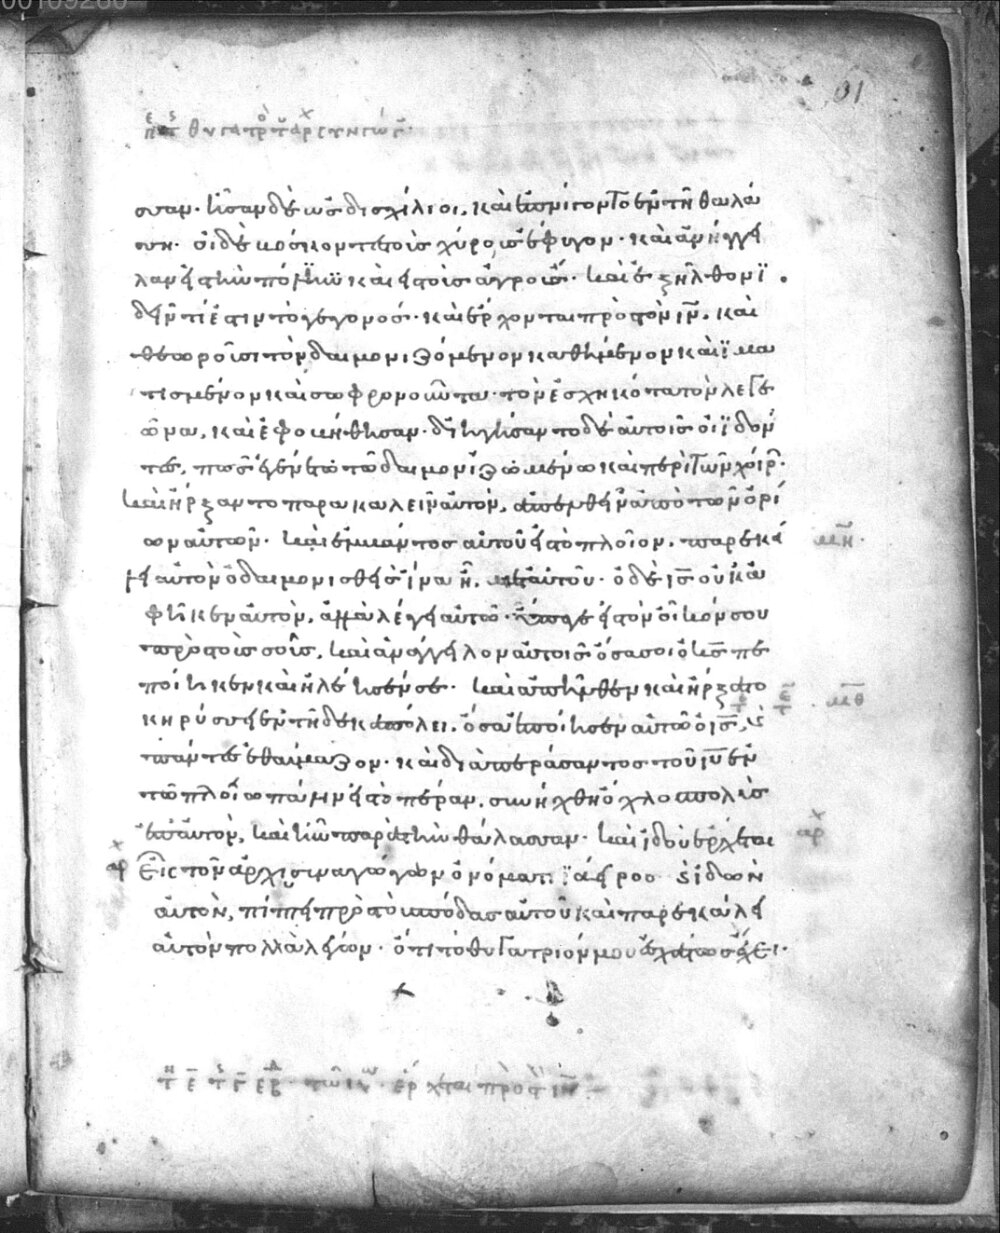 θυγατρ
σσαν· ἦσαν δὲ ὡς δισχίλιοι, καὶ ἐπνίγοντο ἐν τῆ θαλά
σση· οἱ δὲ βόσκοντες τοὺς χύρους ἔφυγον· καὶ ἀνήγγει
λαν εἰς τὴν πόλιν καὶ εἰς τοὺς ἀγρούς· καὶ ἐξῆλθον ϊ
δεῖν τί ἐστιν τὸ γεγονός· καὶ ἔρχονται πρὸς τὸν ιν, καὶ
θεωροῦσι τὸν δαιμονιζόμενον καθήμενον καὶ ϊμα
τισμένον καὶ σωφρονοῦντα· τὸν ἐσχηκότα τὸν λεγε
ῶνα, καὶ ἐφοβήθησαν· διηγήσαντο δὲ αὐτοῖς οἱ ϊδόν
τες, πῶς ἐγένετο τῶ δαιμονιζωμένω καὶ περὶ τῶν χοίρ·
καὶ ἤρξαντο παρακαλεῖν αὐτὸν, ἀπελθεῖν ἀπὸ τῶν ὁρί
ων αὐτῶν· καὶ ἐμβάντος αὐτοῦ εἰς τὸ πλοῖον, παρεκά
λει αὐτὸν ὁ δαιμονισθεὶς ἵνα ἦ μετ αὐτοῦ· ὁ δὲ ις οὐκ ἀ
φῆκεν αὐτὸν, ἀλλὰ λέγει αὐτῶ· ὕπαγε εἰς τὸν οἶκόν σου
πρὸς τοὺς σοὺς, καὶ ἀνάγγειλον αὐτοῖς ὅσα σοι ὁ κς πε
ποίηκεν καὶ ἠλέησέν σε· καὶ ἀπῆλθεν καὶ ἤρξατο
κηρύσσειν ἐν τῆ δεκαπόλει, ὅσα ἐποίησεν αὐτῶ ὁ ις, καὶ
πάντες ἐθαύμαζον· καὶ διαπεράσαντος τοῦ ιυ ἐν
τῶ πλοίω πάλιν εἰς τὸ πέραν, συνήχθη ὄχλος πολὺς
ἐπ αὐτὸν, καὶ ἦν παρὰ τὴν θάλασσαν· καὶ ἰδοὺ ἔρχεται
εἷς τῶν ἀρχισυναγώγων ὀνόματι ϊάειρος καὶ ἰδὼν
αὐτὸν, πίπτει πρὸς τοὺς πόδας αὐτοῦ καὶ παρεκάλει
αὐτὸν πολλὰ λέγων· ὅτι τὸ θυγάτριόν μου ἐσχάτως ἔχει·